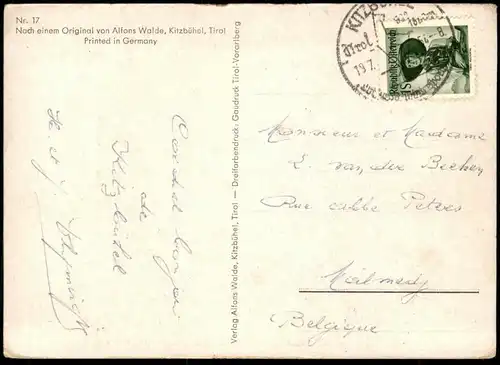 Nr. 17
Nach einem Original von Alfons Walde, Kitzbühel, Tirol
Printed in Germany
KITZBÜHEL
Tirol
19.7.
Republik Österreich
1S
Verlag Alfons Walde, Kitzbühel, Tirol — Dreifarbendruck: Gaudruck Tirol-Vorarlberg
de
Kitzbühel
Monsieur et Madame
E. van der Becken
Rue abbé Peters
Malmedy
Belgique